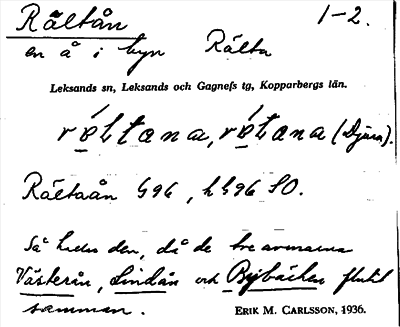 Rältån 1-2.
en å i byn Rälta
Leksands sn, Leksands och Gagnefs tg, Kopparbergs län.
(Djura).
Rältaån G96, h G96 SO.
Så heter den, då de tre armarna
Västerån, Lindån och Byjbäcken flutit
samman. ERIK M. CARLSSON, 1936.